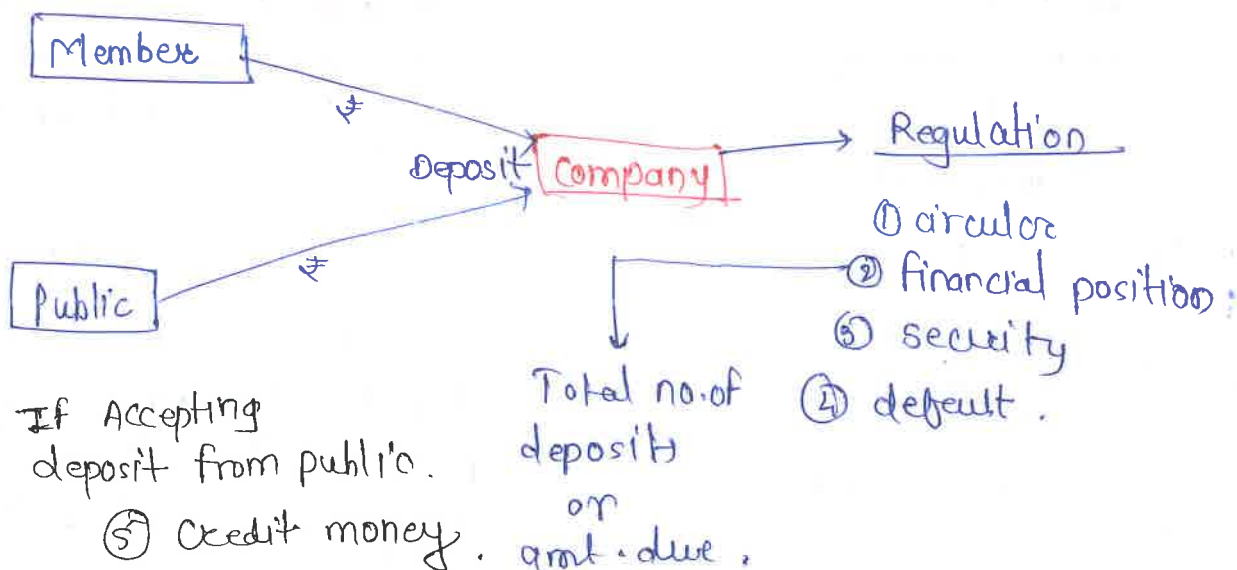 Member
₹
Deposit
Company
Regulation
Public
₹
① circular
② financial position
③ security
④ default.
Total no. of
deposits
or
amt. due.
If Accepting
deposit from public.
⑤ Credit money.